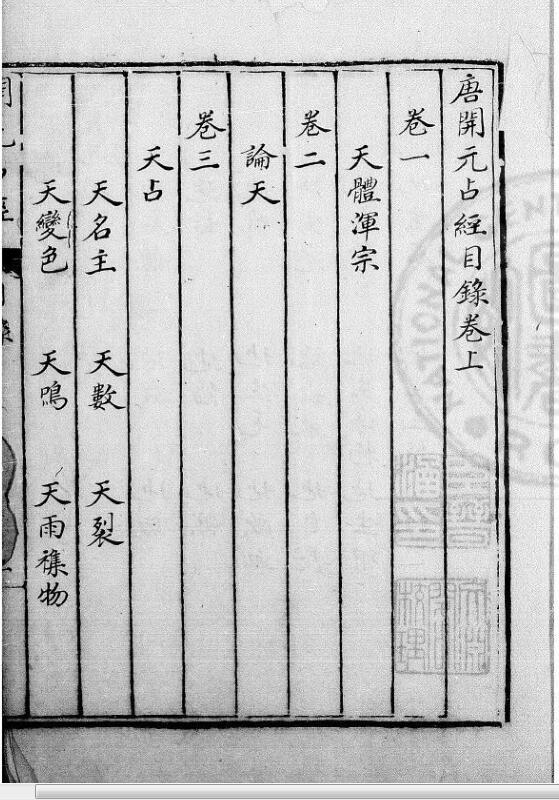 唐開元占經目錄卷上
卷一
天體渾宗
卷二
論天
卷三
天占
天名主 天數 天裂
天變色 天鳴 天雨襍物